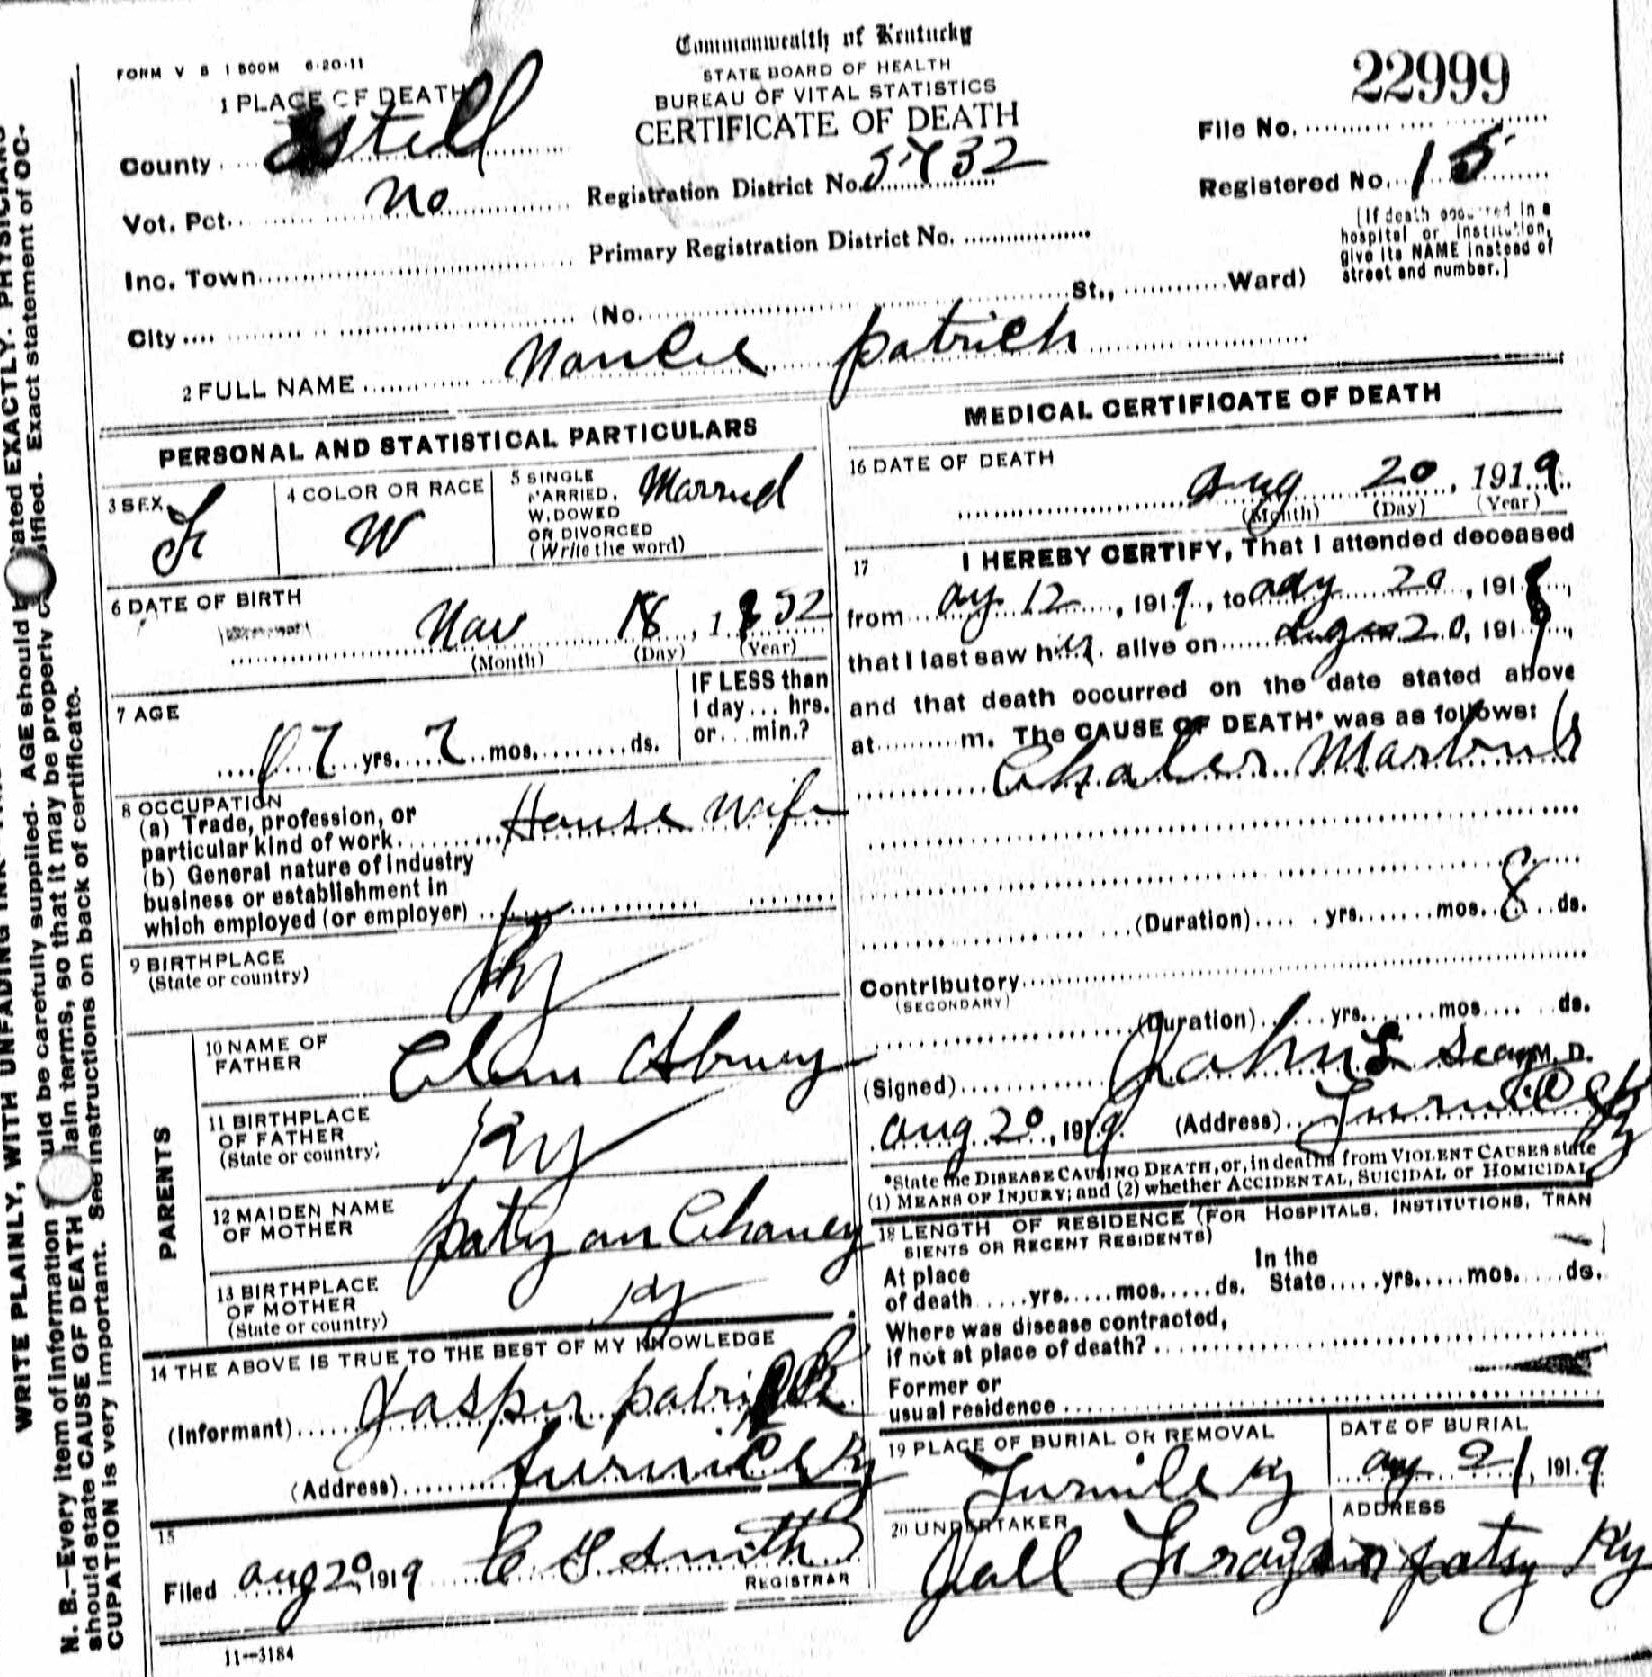 FORM V S 1 500M 6-20-11
Commonwealth of Kentucky
STATE BOARD OF HEALTH
BUREAU OF VITAL STATISTICS
CERTIFICATE OF DEATH
22999
File No.
Registered No. 15
[If death occurred in a
hospital or institution,
give its NAME instead of
street and number.]
1 PLACE OF DEATH
County Estill
Vot. Pct. No
Registration District No. 5732
Inc. Town
Primary Registration District No.
City (No. St., Ward)
2 FULL NAME Nancie patrick
PERSONAL AND STATISTICAL PARTICULARS
3 SEX
4 COLOR OR RACE W
5 SINGLE
MARRIED,
WIDOWED
OR DIVORCED
(Write the word)
Married
6 DATE OF BIRTH
18, 1852
(Month) (Day) (Year)
7 AGE
67 yrs. 7 mos. ds.
IF LESS than
1 day... hrs.
or... min.?
8 OCCUPATION
(a) Trade, profession, or
particular kind of work House wife
(b) General nature of industry
business or establishment in
which employed (or employer)
9 BIRTHPLACE
(State or country)
Ky
PARENTS
10 NAME OF
FATHER
Clem Abney
11 BIRTHPLACE
OF FATHER
(State or country)
Ky
12 MAIDEN NAME
OF MOTHER
paty an Chaney
13 BIRTHPLACE
OF MOTHER
(State or country)
Ky
14 THE ABOVE IS TRUE TO THE BEST OF MY KNOWLEDGE
(Informant) Jasper patrick
(Address)
15
Filed aug 20 1919 C G Smith
REGISTRAR
11-3184
MEDICAL CERTIFICATE OF DEATH
16 DATE OF DEATH
Aug 20, 1919
(Month) (Day) (Year)
17 I HEREBY CERTIFY, That I attended deceased
from 12, 1919, to 20, 191
that I last saw her alive on 20, 191
and that death occurred on the date stated above
at m. The CAUSE OF DEATH* was as follows:
Cholera Morbus
(Duration) yrs. mos. 8 ds.
Contributory
(SECONDARY)
(Duration) yrs. mos. ds.
(Signed) John M. D.
aug 20, 1919 (Address)
*State the DISEASE CAUSING DEATH, or, in deaths from VIOLENT CAUSES state
(1) MEANS OF INJURY; and (2) whether ACCIDENTAL, SUICIDAL or HOMICIDAL
18 LENGTH OF RESIDENCE (FOR HOSPITALS, INSTITUTIONS, TRAN
SIENTS OR RECENT RESIDENTS)
At place
of death yrs. mos. ds.
In the
State yrs. mos. ds.
Where was disease contracted,
if not at place of death?
Former or
usual residence
19 PLACE OF BURIAL OR REMOVAL
Ky
DATE OF BURIAL
21, 1919
20 UNDERTAKER
ADDRESS
patsy Ky
WRITE PLAINLY, WITH UNFADING INK
N. B.—Every item of information should be carefully supplied. AGE should be stated EXACTLY. PHYSICIANS
should state CAUSE OF DEATH in plain terms, so that it may be properly classified. Exact statement of OC-
CUPATION is very important. See instructions on back of certificate.